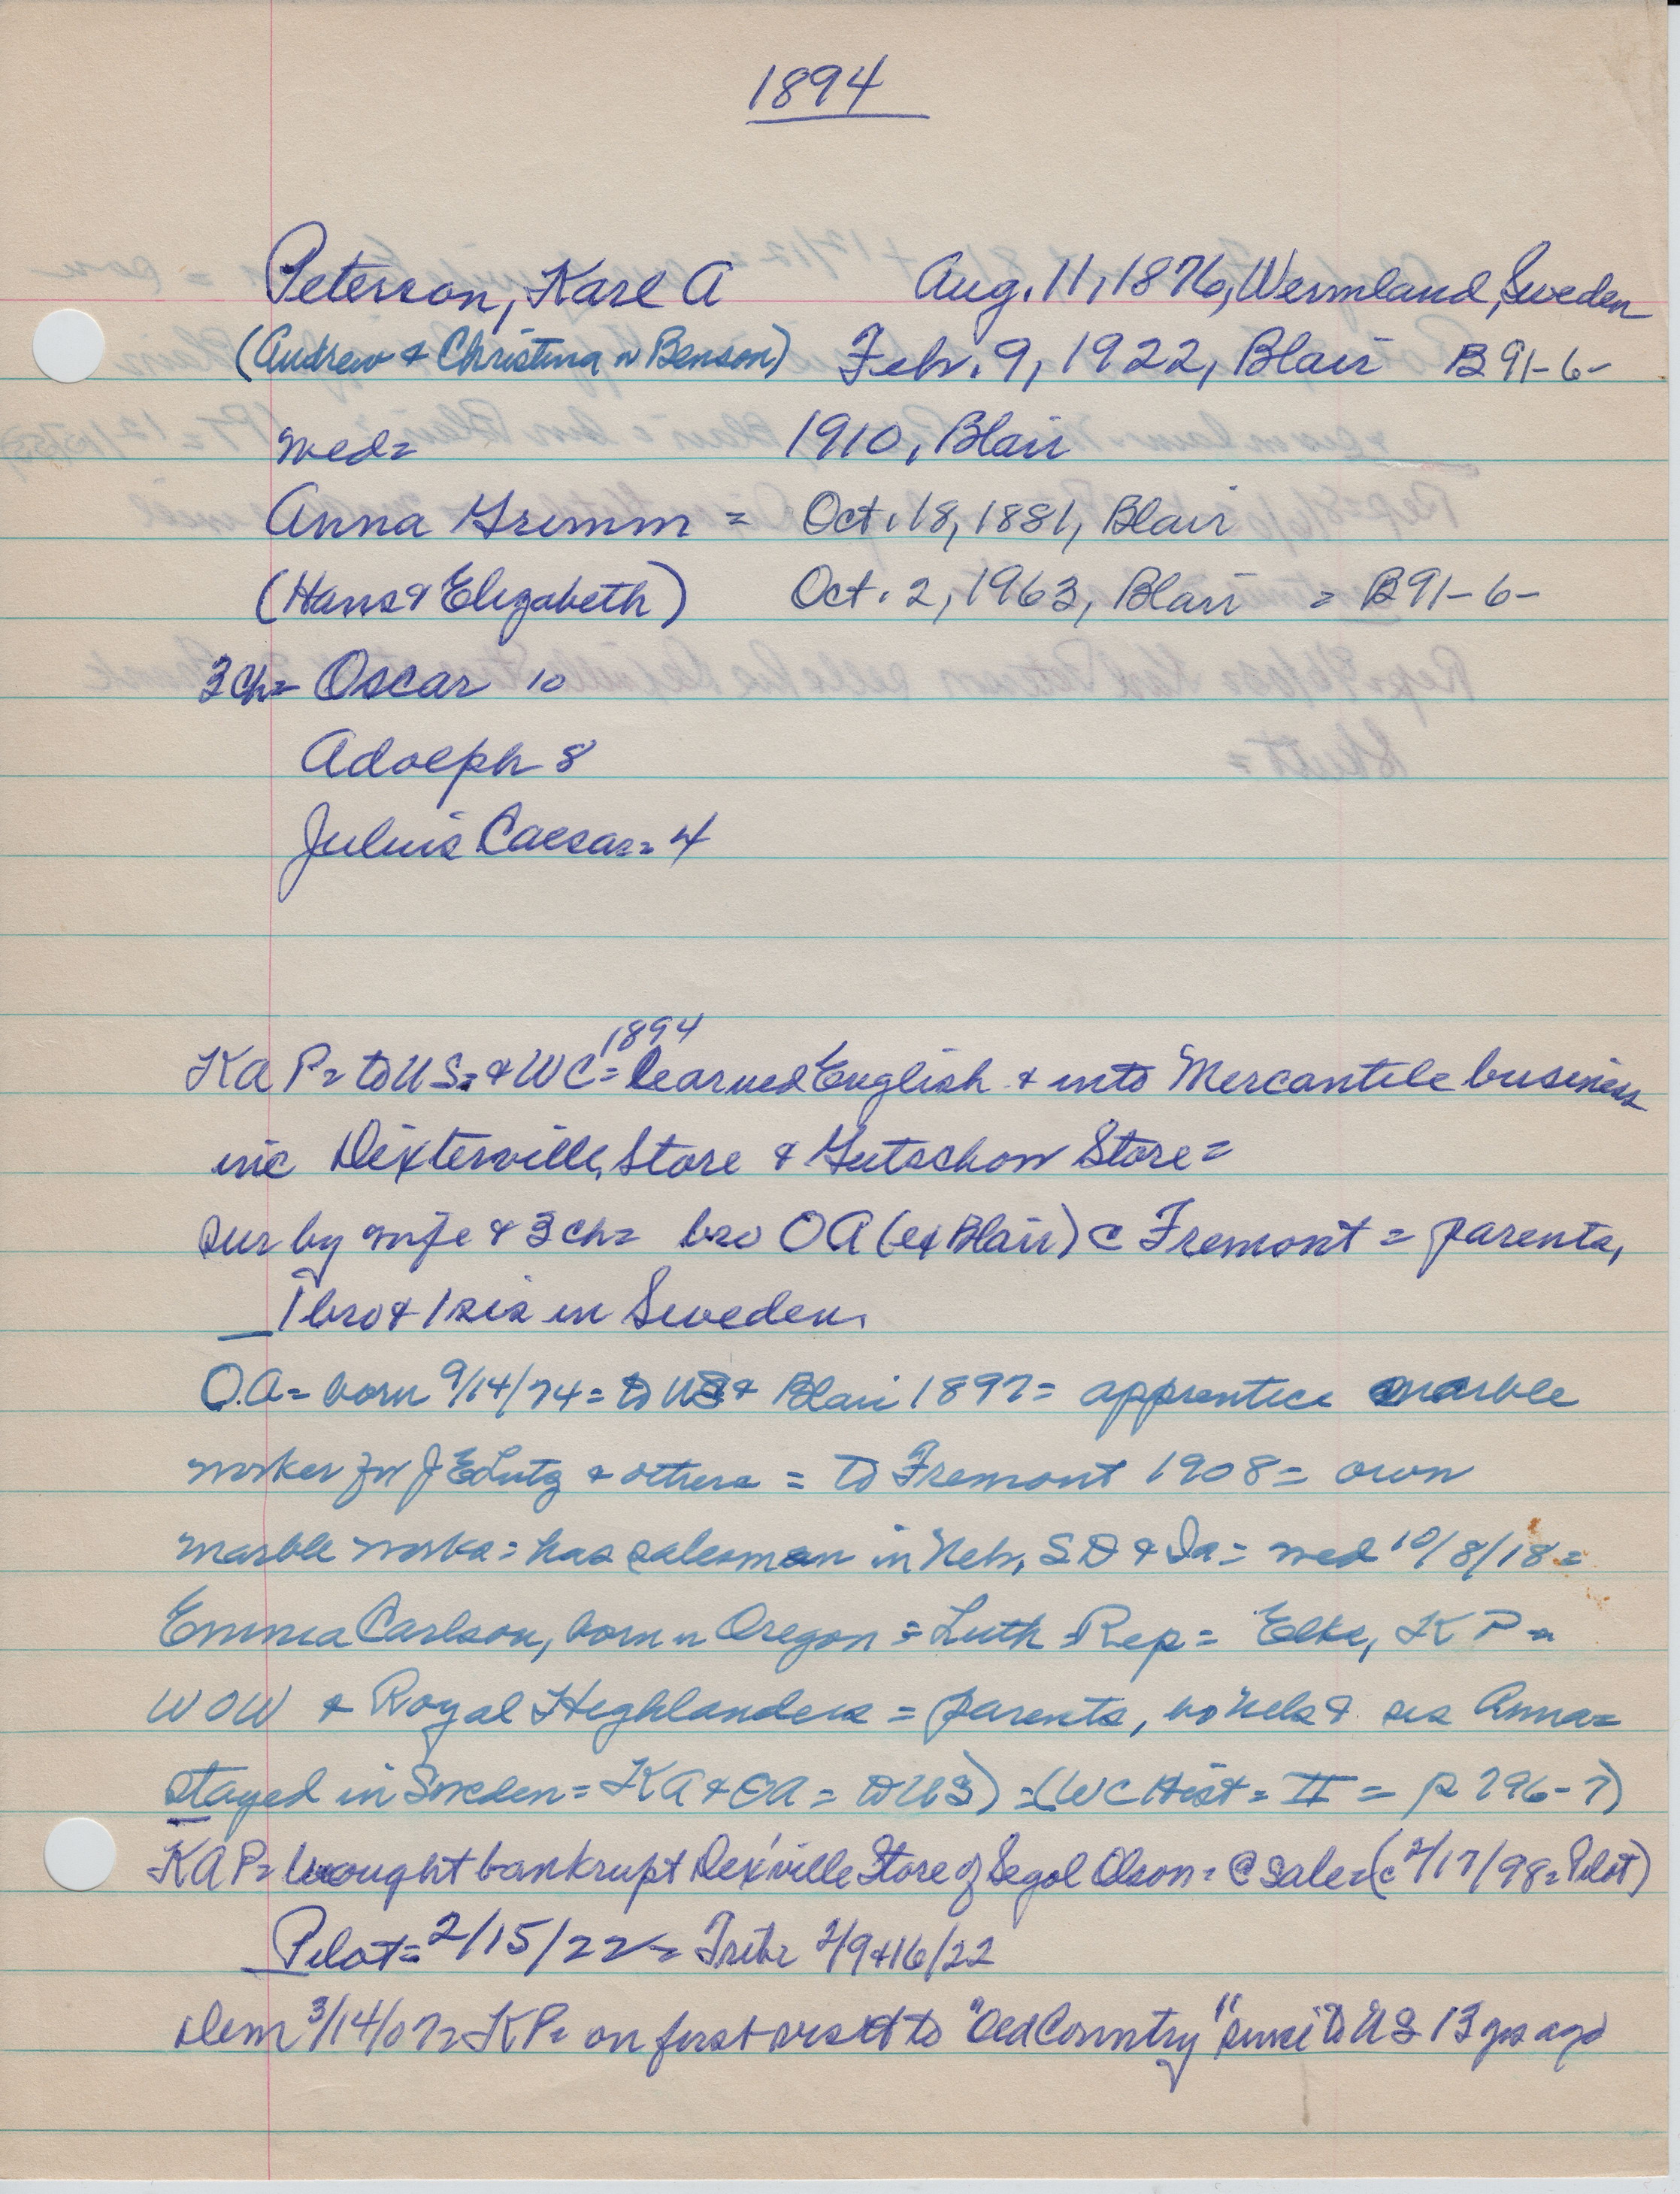 1894
Peterson, Karl A Aug. 11, 1876, Wermland, Sweden
(Andrew & Christina n Benson) Feb. 9, 1922, Blair B91-6-
wed= 1910, Blair
Anna Grimm = Oct. 18, 1881, Blair
(Hans & Elizabeth) Oct. 2, 1963, Blair = B91-6-
3 ch= Oscar 10
Adolph 8
Julius Caesar= 4
1894
KAP= to US= & WC= learned English & into Mercantile business
inc Dexterville Store & Gutschow Store=
sur by wife & 3 ch= bro OA (ex Blair) c Fremont = parents,
1 bro & 1 sis in Sweden.
O.A= born 9/14/74= to US & Blair 1897= apprentice marble
worker for J E Lutz & others = to Fremont 1908= own
marble works= has salesman in Neb, SD & Ia= wed 10/8/18=
Emma Carlson, born n Oregon = Luth Rep= Elks, KP=
WOW & Royal Highlanders = parents, bro Nels & sis Anna=
stayed in Sweden= KA & OA= to US) =(WC Hist= II= p 796-7)
KAP= bought bankrupt Dex'ville Store of Segol Olson= @ sale=(c 2/17/98= Pilot)
Pilot= 2/15/22= Trib= 2/9&16/22
Dem 3/14/07= KP= on first visit to "Old Country" since to US 13 yrs ago